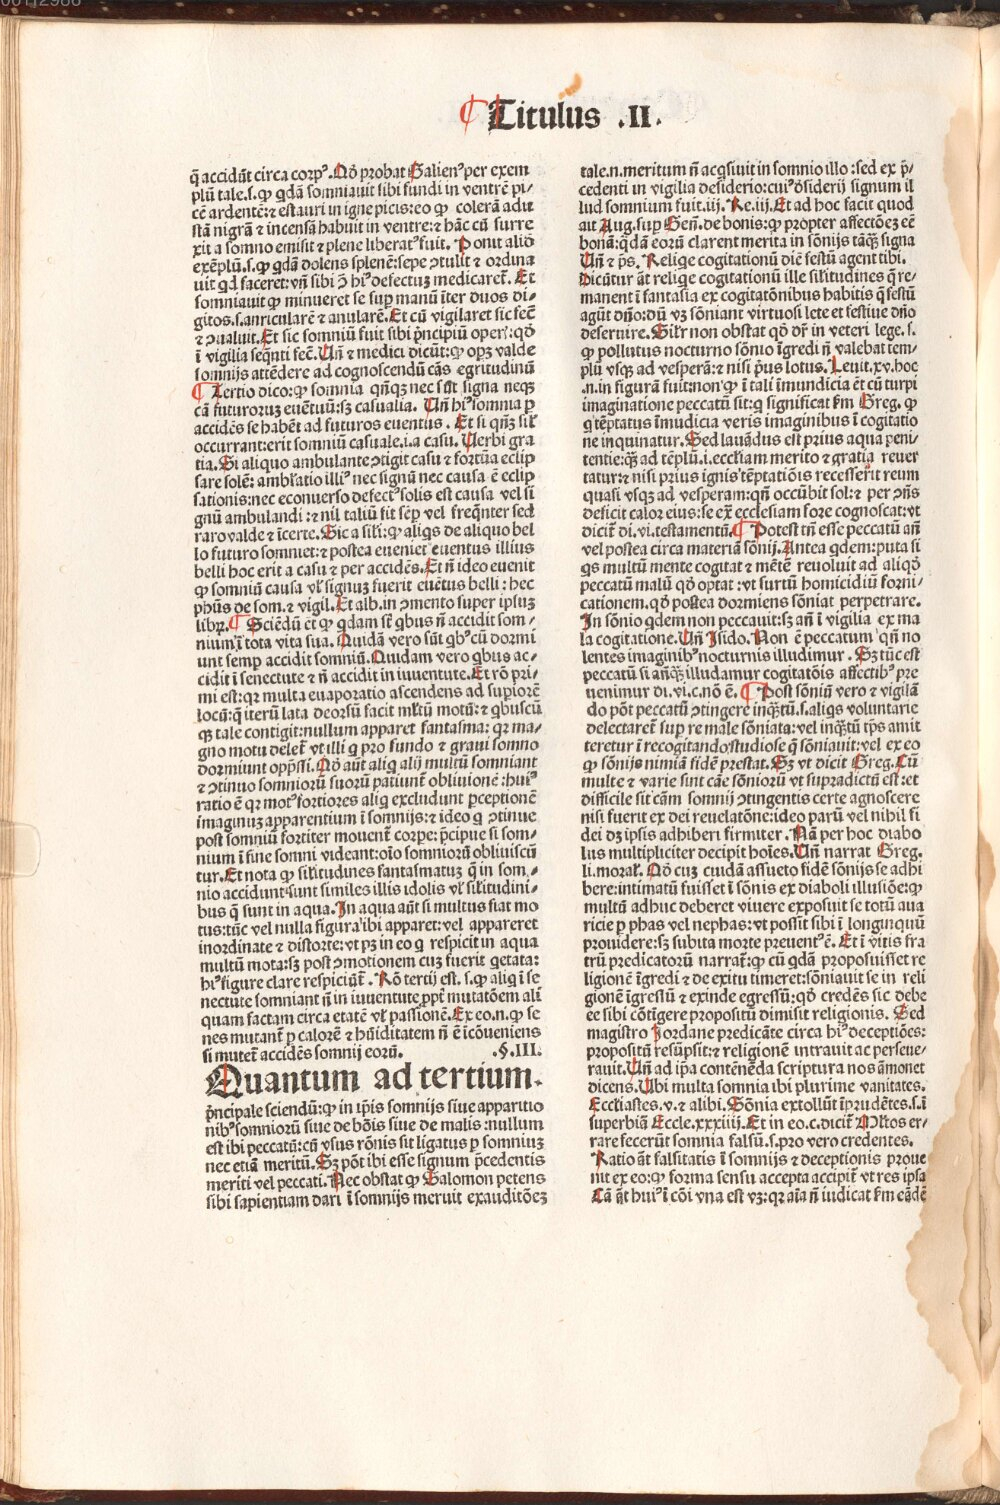 ¶ Titulus .II.
q̄ accidūt circa corpꝰ. Qḋ probat Galienꝰ per exem
plū tale.s.ꝙ qdā somniauit sibi fundi in ventrē pi⸗
cē ardentē: ⁊ est auri in igne picis: eo ꝙ colerā adu
stā nigrā ⁊ incensā habuit in ventre: ⁊ hāc cū surre
xit a somno emisit ⁊ plene liberatꝰ fuit. Ponit aliō
exēplū.s.ꝙ qdā dolens splenē: sepe ↄtulit ⁊ ordina
uit qd faceret: vn̄ sibi ꝓ hiꝰ defectuꝫ medicaret᷑. Et
somniauit ꝙ minueret se sup manū īter duos di⸗
gitos.s.auricularē ⁊ anularē. Et cū vigilaret sic fec̄
⁊ ↄualuit. Et sic somniū fuit sibi pͥncipiū oper̄: qḋ
ī vigilia seqn̄ti fec̄. Un̄ ⁊ medici dicūt: ꝙ opꝫ valde
somnijs attēdere ad cognoscendū cās egritudinū
¶ Tertio dico: ꝙ somnia qn̄qꝫ nec sūt signa neqꝫ
cā futuroruꝫ euētuū: sꝫ casualia. Un̄ hiꝰ somnia ꝑ
accidēs se habēt ad futuros euentus. Et si qn̄ꝫ sil̄
occurrant: erit somniū casuale.i.a casu. Uerbi gra
tia. Si aliquo ambulante ↄtigit casu ⁊ fortūa eclip
sare solē: amblatio illiꝰ nec signū nec causa ē eclip
sationis: nec econuerso defectꝰ solis est causa vel si
gnū ambulandi: ⁊ nil taliū fit sēp vel freqn̄ter sed
raro valde ⁊ īcerte. Sic a sil̄i: ꝙ aliqs de aliquo bel
lo futuro somniet: ⁊ postea eueniet euentus illius
belli hoc erit a casu ⁊ per accidēs. Et n̄ ideo euenit
ꝙ somniū causa vl̄ signuꝫ fuerit euētus belli: hec
ph̄us de som. ⁊ vigil. Et alb. in ↄmento super ipsuꝫ
libꝝ. ¶ Sciēdū ēt ꝙ qdam sūt qbus n̄ accidit som⸗
nium ī tota vita sua. Quidā vero sūt qbꝰ cū dormi
unt semp accidit somniū. Quidam vero qbus ac⸗
cidit ī senectute ⁊ n̄ accidit in iuuentute. Et rō pri⸗
mi est: qꝛ multa euaporatio ascendens ad supiorē
locū: q̄ iterū lata deorsū facit ml̄tū motū: ⁊ qbuscū
qꝫ tale contigit: nullum apparet fantasma: qꝛ ma⸗
gno motu delet᷑ vt illi q pro fundo ⁊ graui somno
dormiunt opp̄ssi. Qḋ aūt aliq alij multū somniant
⁊ ↄtinuo somniorū suorū patiunt᷑ obliuionē: huiꝰ
ratio ē qꝛ motꝰ fortiores aliq excludunt ꝑceptionē
imaginuꝫ apparentium ī somnijs: ⁊ ideo q ↄtinue
post somniū fortiter mouent᷑ corpe: p̄cipue si som⸗
nium ī fine somni videant: oīo somniorū obliuiscū
tur. Et nota ꝙ sil̄itudines fantasmatuꝫ q̄ in som⸗
nio accidunt: sunt similes illis idolis vl̄ sil̄itudini⸗
bus q̄ sunt in aqua. In aqua aūt si multus fiat mo
tus: tūc vel nulla figura ibi apparet: vel appareret
inordinate ⁊ distorte: vt pꝫ in eo q respicit in aqua
multū mota: sꝫ post ↄmotionem cuꝫ fuerit q̄etata:
hiꝰ figure clare respiciūt᷑. Rō tertij est.s.ꝙ aliq ī se
nectute somniant n̄ in iuuentute ꝓpt̄ mutatōem ali
quam factam circa etatē vl̄ passionē. Ex eo.n.ꝙ se
nes mutant᷑ ꝑ calorē ⁊ hūiditatem n̄ ē īcōueniens
si mutet᷑ accidēs somnij eorū. .§.III.
Quantum ad tertium.
pͥncipale sciendū: ꝙ in ip̄is somnijs siue apparitio
nibꝰ somniorū siue de bōis siue de malis: nullum
est ibi peccatū: cū vsus rōnis sit ligatus ꝑ somniuꝫ
nec etiā meritū. Sꝫ pōt ibi esse signum p̄cedentis
meriti vel peccati. Nec obstat ꝙ Salomon petens
sibi sapientiam dari ī somnijs meruit exauditōeꝫ
tale.n.meritum n̄ acqsiuit in somnio illo: sed ex p̄⸗
cedenti in vigilia desiderio: cuiꝰ ḋsiderij signum il
lud somnium fuit.iij. Re.iij. Et ad hoc facit quod
ait Aug. sup Gen̄. de bonis: ꝙ propter affectiōeꝫ eē
bonā: qdā eorū clarent merita in sōnijs tāqꝫ signa
Un̄ ⁊ ps. Reliqe cogitationū diē festū agent tibi.
Dicūtur āt reliqe cogitationū ille sil̄itudines q̄ re⸗
manent ī fantasia ex cogitatōnibus habitis q̄ festū
agūt dn̄o: dū vꝫ sōniant virtuosi lete et festiue dn̄o
deseruire. Sil̄r non obstat qḋ dr̄ in veteri lege.s.
ꝙ pollutus nocturno sōnio īgredi n̄ valebat tem⸗
plū vsqꝫ ad vesperā: ⁊ nisi pͥus lotus. Leuit.xv. hoc
.n. in figurā fuit: non ꝙ ī tali īmundicia ēt cū turpi
imaginatione peccatū sit: q significat s̄m Greg. ꝙ
q tēptatus īmudicia veris imaginibus ī cogitatio
ne inquinatur. Sed lauādus est prius aqua peni⸗
tentie: qꝫ ad tēplū.i.eccl̄iam merito ⁊ gratia reuer
tatur: ⁊ nisi prius ignis tēptatiōis recesserit reum
quasi vsqꝫ ad vesperam: qn̄ occūbit sol: ⁊ per ↄn̄s
deficit calor eius: se ex ecclesiam fore cognoscat: vt
dicit᷑ di.vi. testamentū. ¶ Potest tn̄ esse peccatū an̄
vel postea circa materiā sōnij. Antea qdem: puta si
qs multū mente cogitat ⁊ mētē reuoluit ad aliqḋ
peccatū malū qḋ optat: vt furtū homicidiū forni⸗
cationem. qḋ postea dormiens sōniat perpetrare.
In sōnio qdem non peccauit: sꝫ an̄ ī vigilia ex ma
la cogitatione. Un̄ Isido. Non ē peccatum qn̄ no
lentes imaginibꝰ nocturnis illudimur. Sꝫ tūc est
peccatū si an̄qꝫ illudamur cogitatōis affectibꝰ pre
uenimur di.vi.c.nō ē. ¶ Post sōniū vero ⁊ vigilā
do pōt peccatū ↄtingere inqn̄tū.s.aliqs voluntarie
delectaret᷑ sup re male sōniata: vel inqn̄tū tp̄s amit
teretur ī recogitando studiose q̄ sōniauit: vel ex eo
ꝙ sōnijs nimiā fidē prestat. Sꝫ vt dicit Greg. Cū
multe ⁊ varie sint cāe sōniorū vt supradictū est: et
difficile sit cām somnij ↄtingentis certe agnoscere
nisi fuerit ex dei reuelatōne: ideo parū vel nihil fi
dei dꝫ ipsis adhiberi firmiter. Nā per hoc diabo
lus multipliciter decipit hoīes. Un̄ narrat Greg.
li.moral̄. Qḋ cuꝫ cuidā assueto fidē sōnijs se adhi
bere: intimatū fuisset ī sōnis ex diaboli illusiōe: ꝙ
multū adhuc deberet viuere exposuit se totū aua
ricie ꝑ phas vel nephas: vt possit sibi ī longinquū
prouidere: sꝫ subita morte preuentꝰ ē. Et ī vitis fra
trū predicatorū narrat᷑: ꝙ cū qdā proposuisset re
ligionē īgredi ⁊ de exitu timeret: sōniauit se in reli
gionē īgressū ⁊ exinde egressū: qḋ credēs sic debe
ee sibi cōtīgere propositū dimisit religionis. Sed
magistro Jordane predicāte circa hiꝰ deceptiōes:
propositū resūpsit: ⁊ religionē intrauit ac perseue⸗
rauit. Un̄ ad ip̄a contenēda scriptura nos āmonet
dicens. Ubi multa somnia ibi plurime vanitates.
Eccl̄iastes.v. ⁊ alibi. Sōnia extollūt īprudētes.s.ī
superbiā Eccle.xxxiiij. Et in eo.c.dicit᷑ Ml̄tos er⸗
rare fecerūt somnia falsū.s.pro vero credentes.
Ratio āt falsitatis ī somnijs ⁊ deceptionis proue
nit ex eo: ꝙ forma sensu accepta accipit᷑ vt res ipsa
Cā āt huiꝰ ī cōi vna est vꝫ: qꝛ aīa n̄ iudicat s̄m eādē